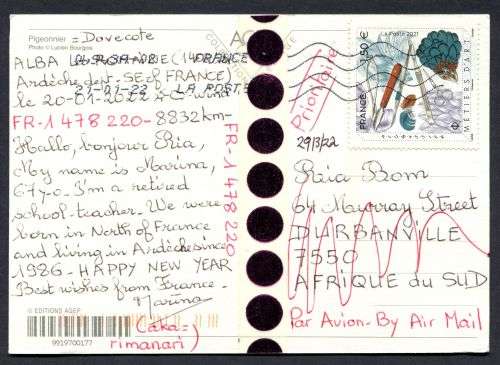 Pigeonnier = Dovecote
Photo © Lucien Bourgois
ALBA
FRANCE
Ardèche dept - SE of FRANCE)
21-01-22 LA POSTE
le 20-01-2022 4°C wind
FR-1 478 220 - 8832 km -
Hallo, bonjour Ria,
My name is Marina,
67 y-o. I'm a retired
school-teacher. We were
born in North of France
and living in Ardèche since
1986 - HAPPY NEW YEAR
Best wishes from France.
Marina
(aka=
rimanari)
© EDITIONS AGEP
9919700177
FR-1 478 220
Prioritaire
La Poste 2021
1,50 €
FRANCE
MÉTIERS D'ART
29/3/22
Ria Bom
64 Murray Street
DURBANVILLE
7550
AFRIQUE du SUD
Par Avion - By Air Mail